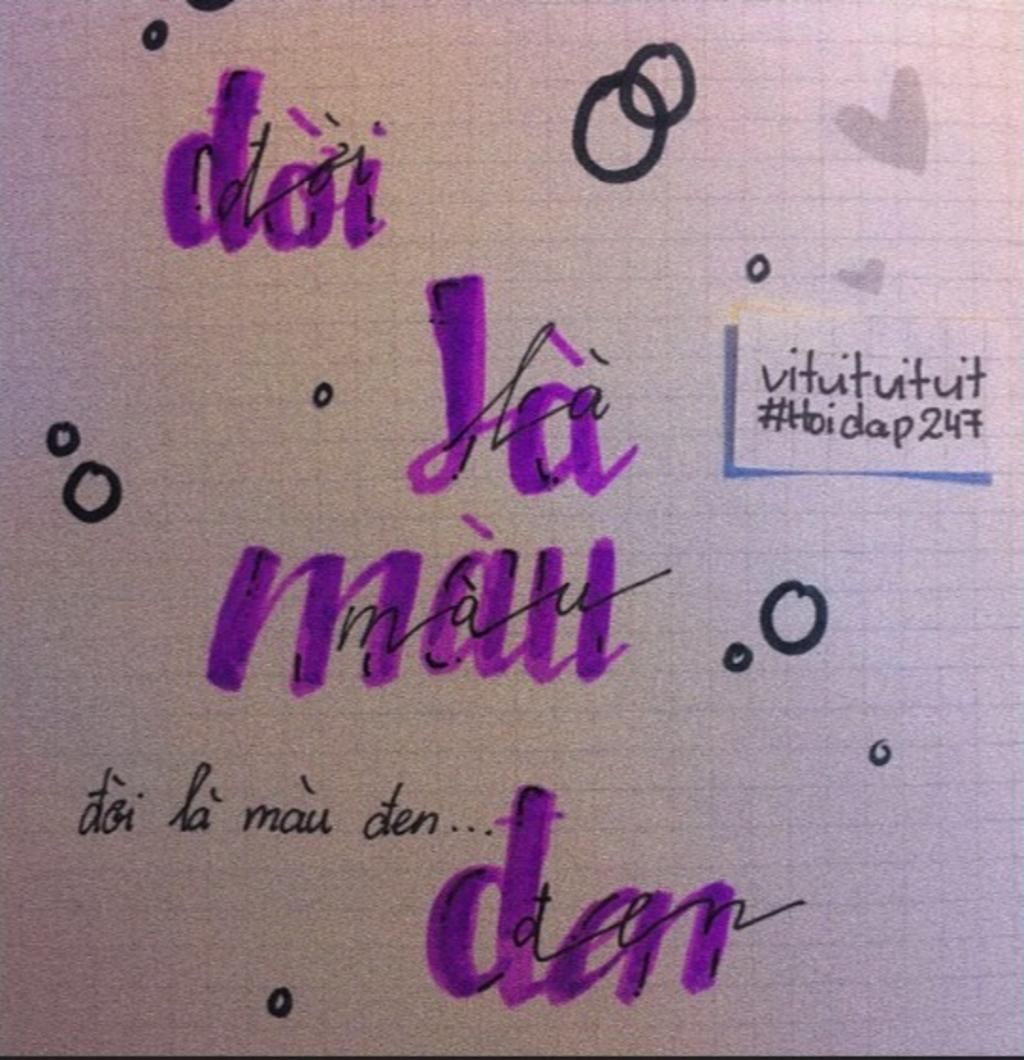 đời
đời
là
là
vituituituit
#Hoidap247
màu
màu
đời là màu đen...
đen
đen